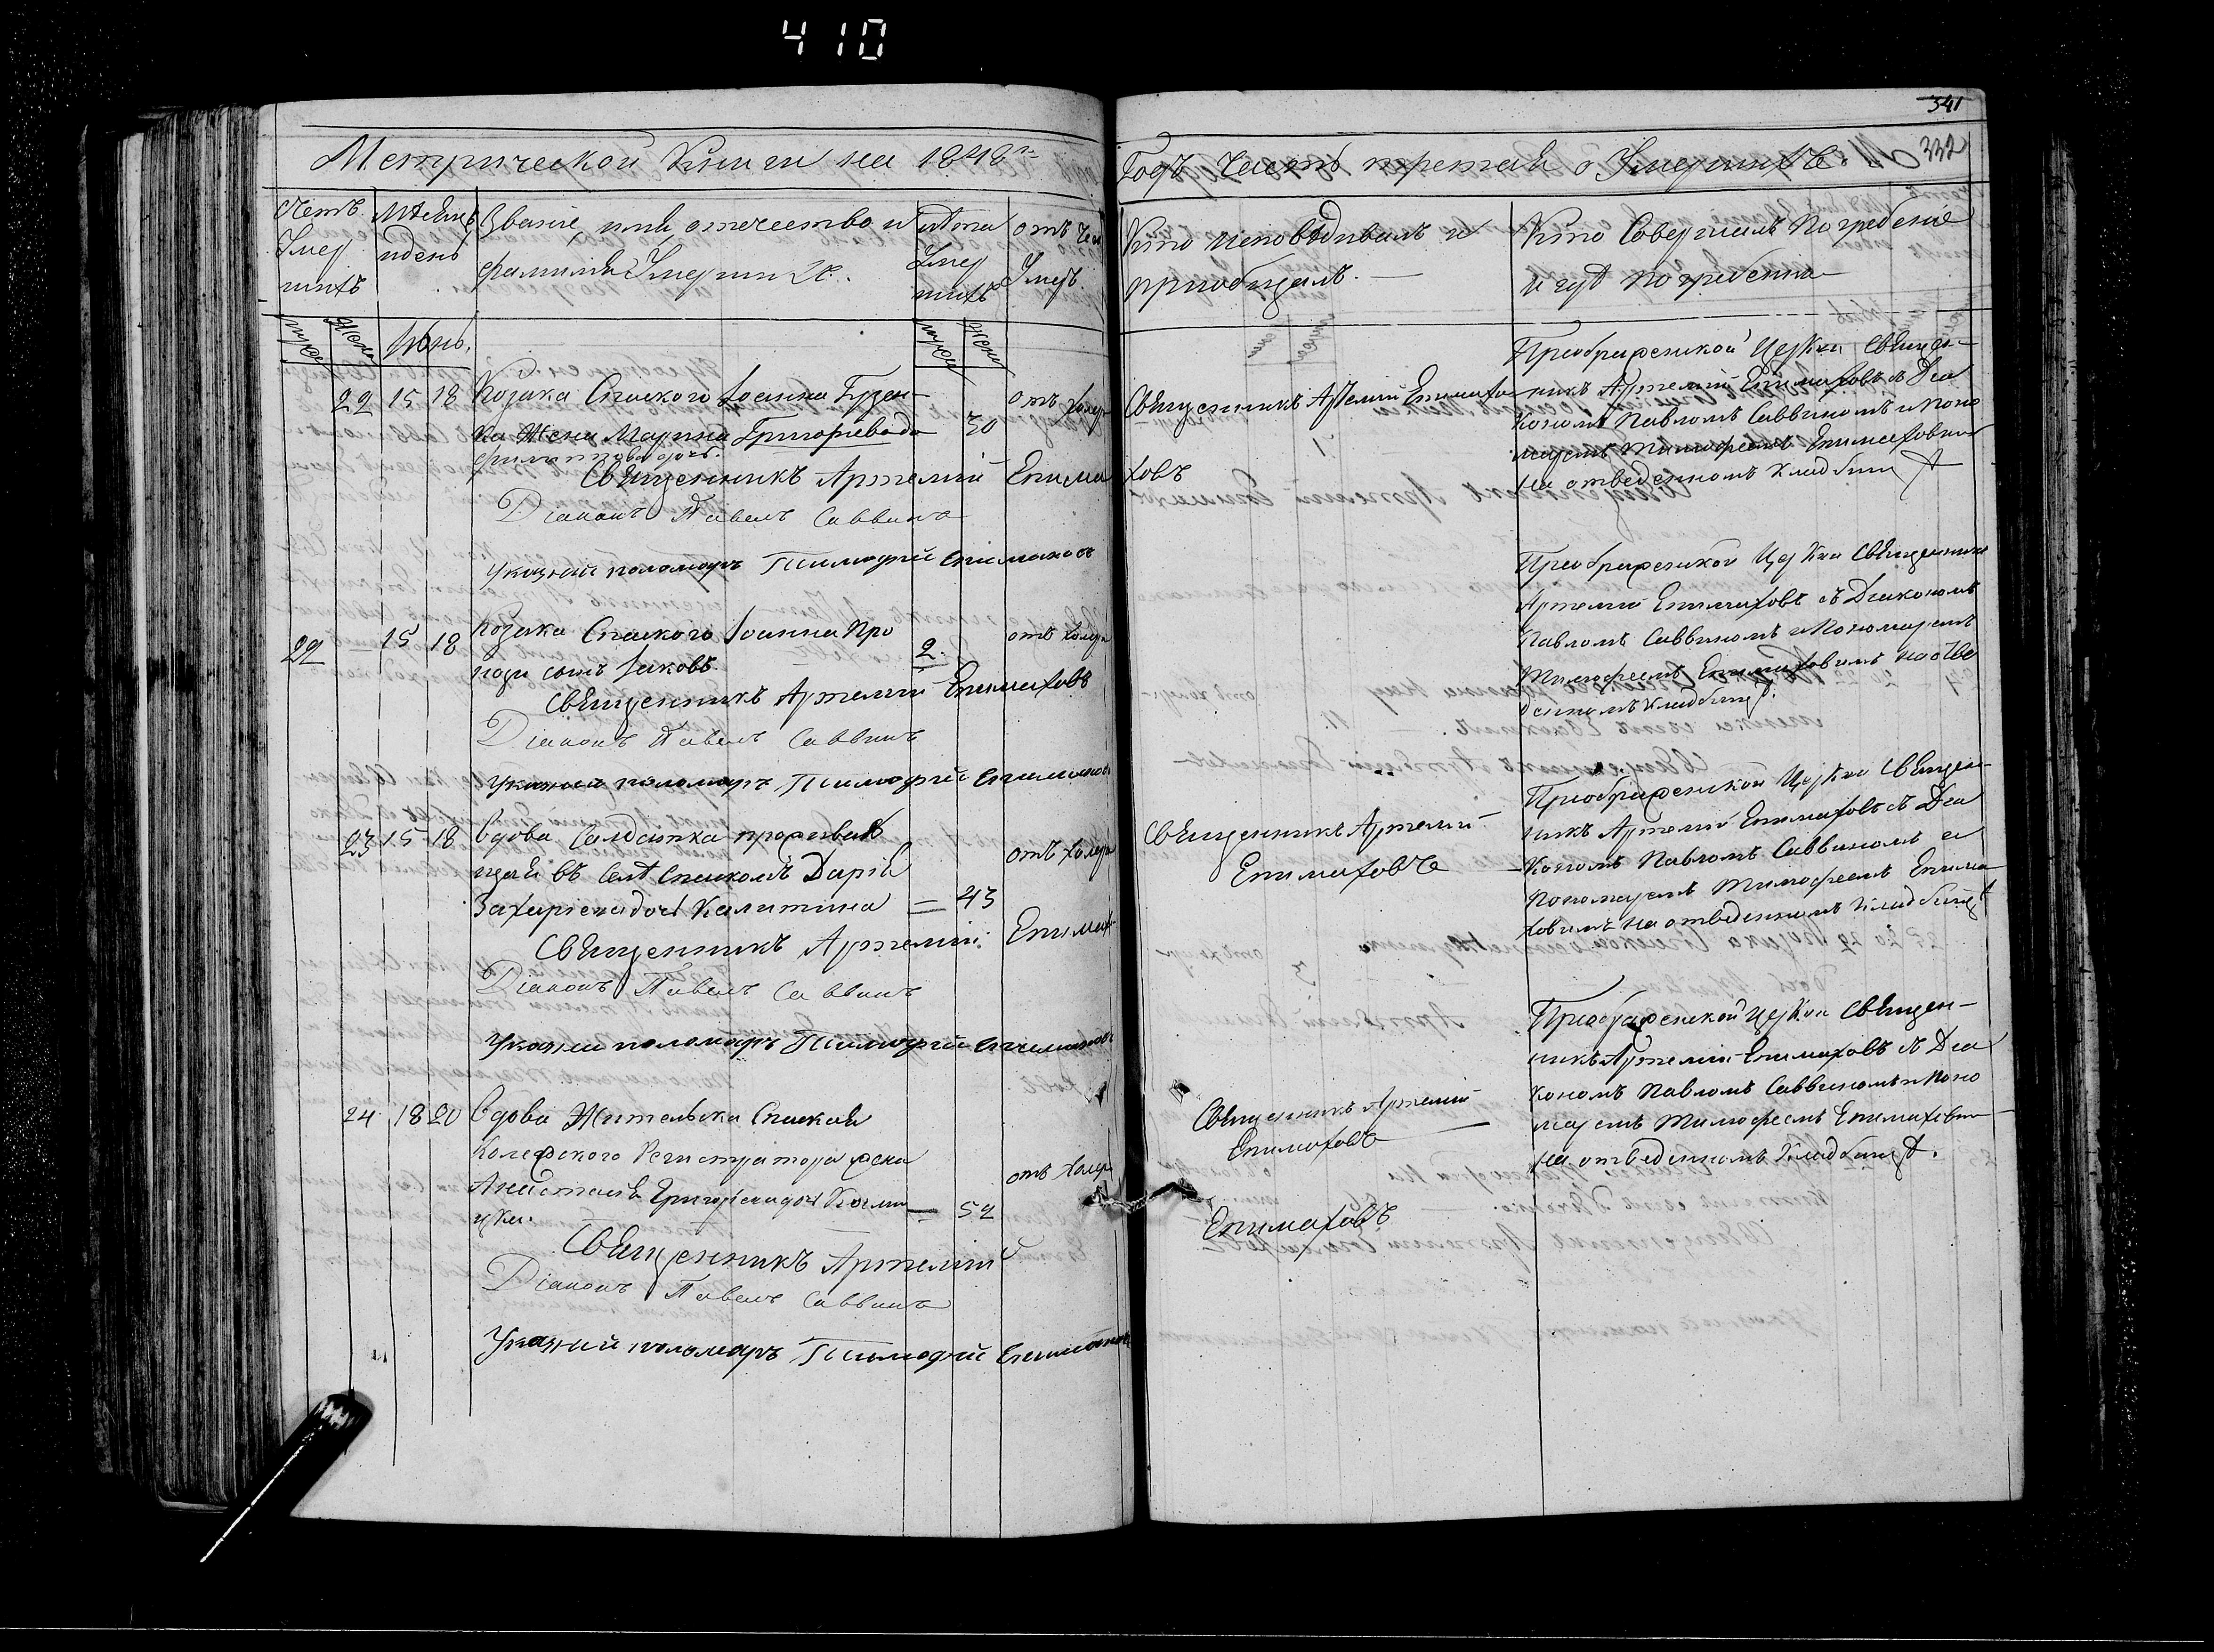 410
341
332
Метрической Книги на 1848й
Годъ Часть третая о Умершихъ.
Счетъ Умершихъ
Мѣсяцъ и день
Званіе, имя, отчество и фамилія Умершихъ.
Лѣта Умершихъ
отъ чего Умеръ.
Кто исповѣдивалъ и приобщалъ.
Кто Совершалъ Погребеніе и гдѣ погребенна
муж. жен. Июнь. муж. жен.
22 15 18 Козака Спаского Іоанна
ка Жена Марина Григориева до 30 отъ холер
Священникъ Артемій Епима
ховъ
Діаконъ Павелъ Саввинъ
Указний поломарь Тимофѣй Епимаховъ
Священникъ Артемій Епимахо
Преображенской Церкви Священ-
никъ Артемій Епимаховъ съ Диа
кономъ Павломъ Саввиномъ и Поно
маремъ Тимофеемъ Епимаховим
на отведенномъ Кладбищѣ
22 15 18 Козака Спаского Іоанна Про
сынъ Іаковъ. 2. отъ холер
Священникъ Артемій Епимаховъ
Діаконъ Павелъ Саввинъ
Указний поломарь Тимофѣй Епимахов
Преображенской Церкви Священникъ
Артемій Епимаховъ съ Диакономъ
Павломъ Саввиномъ и Пономаремъ
Тимофеемъ Епимаховимъ на отве
денномъ Кладбищѣ.
23 15 18 Вдова Салдатка прожива
щая въ Селѣ Спаскомъ Дарія
Захаріева дочь Калитина = 43 отъ холеры
Священникъ Артемій Епимах
Діаконъ Павелъ Саввинъ
Указний поломарь Тимофѣй Епимахов
Священникъ Артемій
Епимаховъ
Преображенской Церкви Священ-
никъ Артемій Епимаховъ съ Диа
кономъ Павломъ Саввиномъ и
Пономаремъ Тимофеемъ Епима
ховимъ на отведенномъ Кладбищѣ
24 18 20 Вдова Жителька Спаская
Колежского Регистратора жена
Анастасія Григориева дочь
52 отъ холер
Священникъ Артемій
Діаконъ Павелъ Саввинъ
Указний поломарь Тимофѣй Епимахов
Священникъ Артемій
Епимаховъ
Епимаховъ
Преображенской Церкви Священ-
никъ Артемій Епимаховъ съ Диа
кономъ Павломъ Саввиномъ и Поно
маремъ Тимофеемъ Епимаховим
на отведенномъ Кладбищѣ.